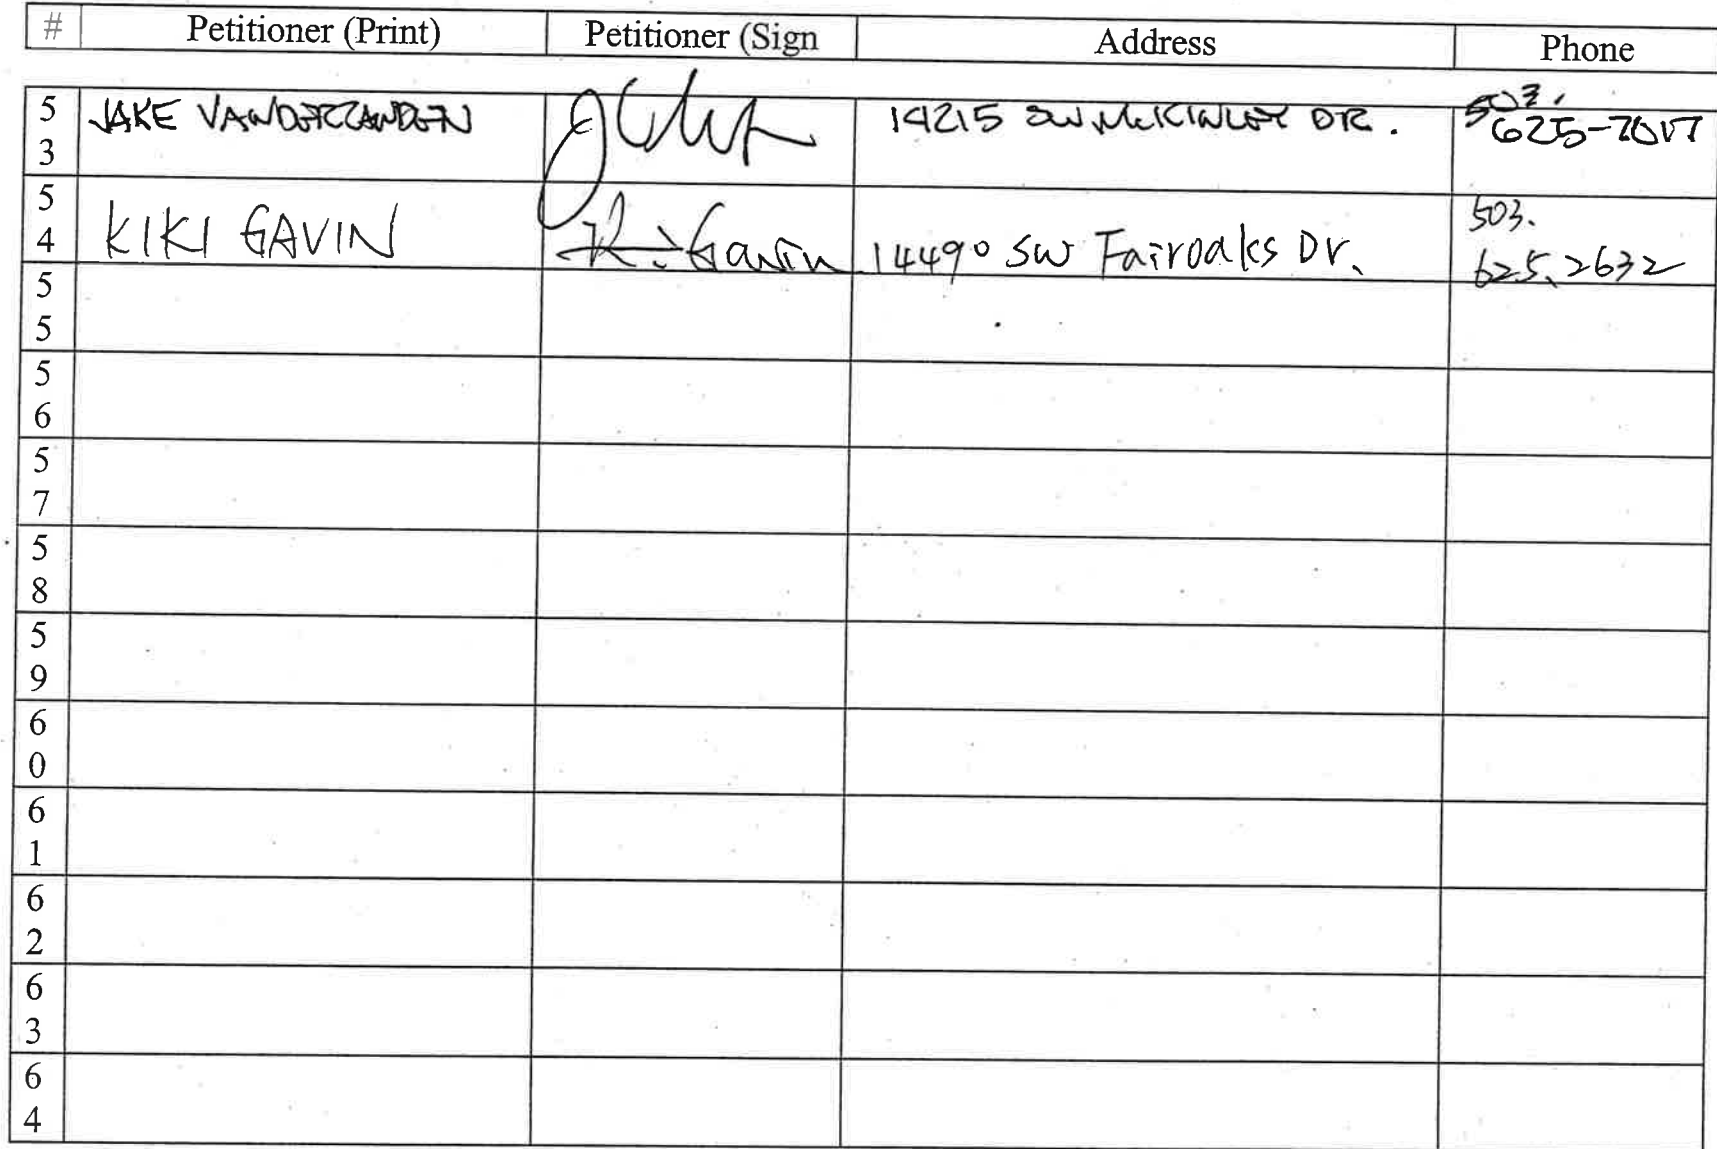 # Petitioner (Print) Petitioner (Sign Address Phone
53 JAKE VANDERZANDEN 14215 SW McKINLEY DR. 503.
625-7017
54 KIKI GAVIN Ki Gavin 14490 SW Fairoaks Dr. 503.
625.2632
55
56
57
58
59
60
61
62
63
64